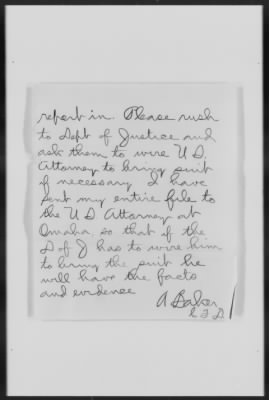 report in. Please rush
to Dept of Justice and
ask them to wire U.S.
Attorney to bring suit
if necessary I have
sent my entire file to
the U S Attorney at
Omaha so that if the
D of J has to wire him
to bring the suit he
will have the facts
and evidence
A Baker